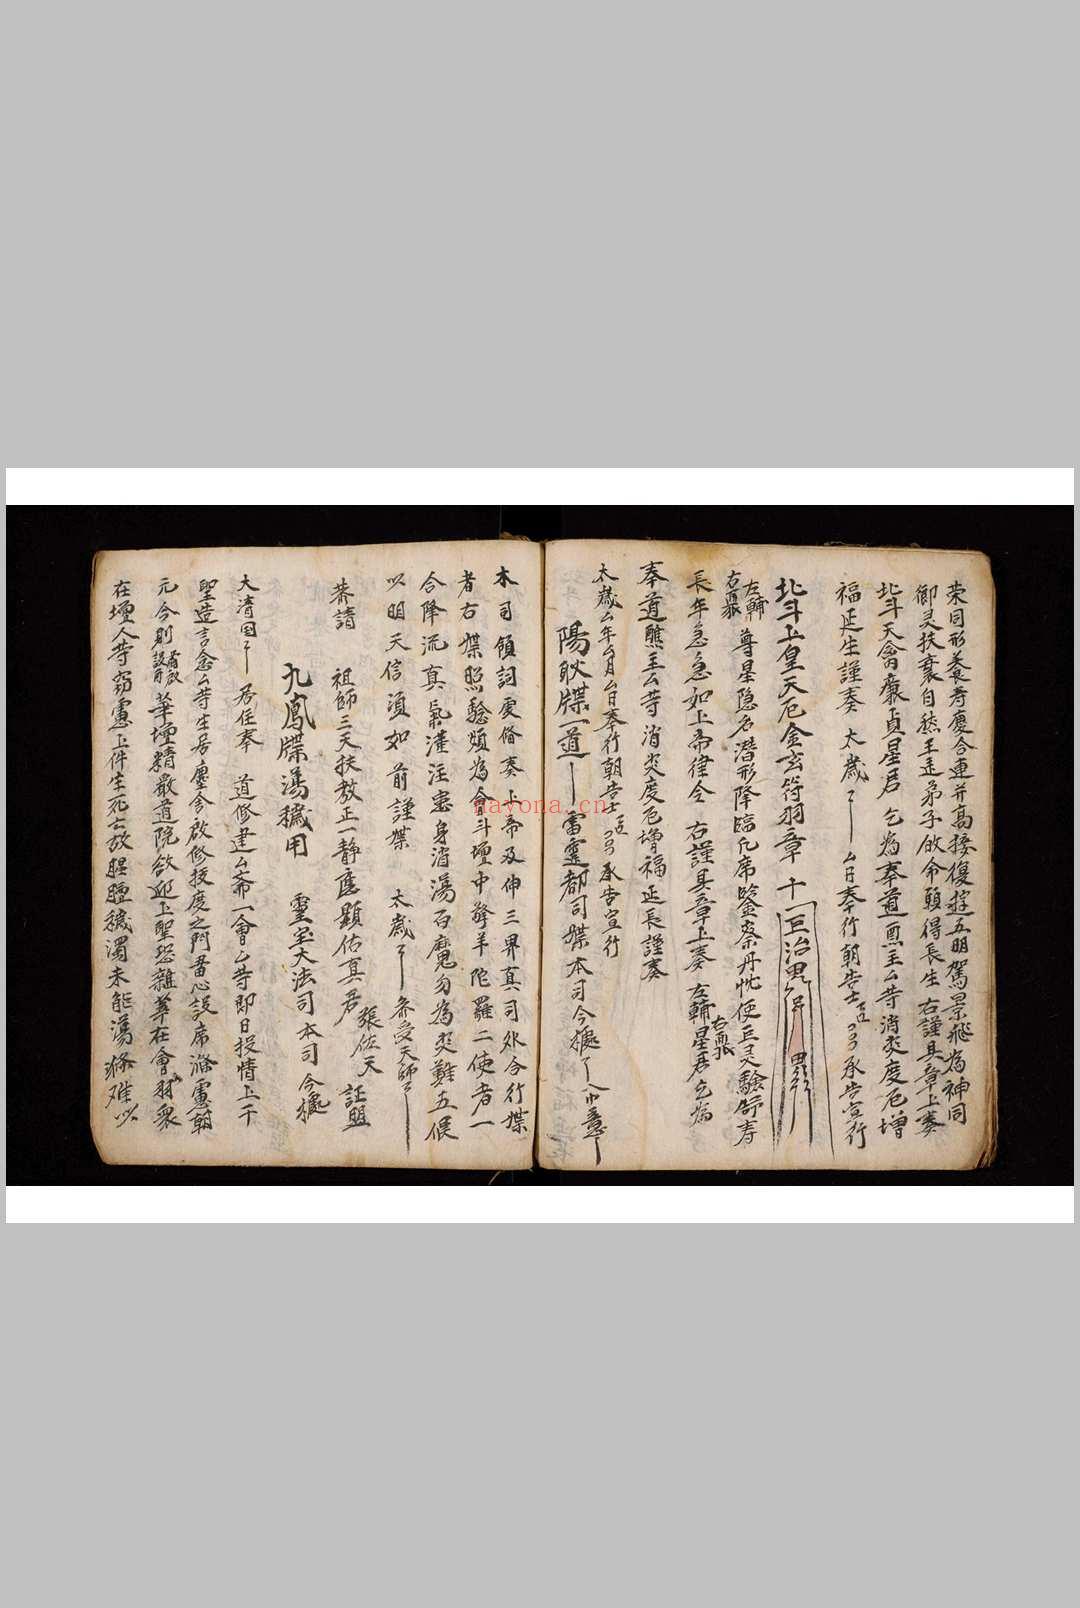 荣同形养寿慶合連并高接復控五明駕景飛為神同
御灵扶衰自然王弟子啟命願得長生右謹具章上奏
北斗天禽廉貞星君 乞為奉道醮主厶等消災度厄增
福延生謹奏 太歲 厶日奉行朝告士 承告宣行
北斗上皇天厄金玄符羽章 十
左輔
右弼
尊星隐名潛形降臨几席鑒察丹忱使巨灵驗錫寿
長年急急如上帝律令 右謹具章上奏 左輔星君乞為
右弼
奉道醮主厶等消災度厄增福延長謹奏
太歲厶年厶月厶日奉行朝告士 承告宣行
陽耿牒一道 雷霆都司牒本司今據 意
本司領詞處俻奏上帝及伸三界真司外合行牒
者右牒照驗煩為會斗壇中擎羊陀羅二使者一
合降流真氣灌注患身消蕩百魔勿為災難五候
以明天信須如前謹牒 太歲 参受天師
恭請 祖師三天扶教正一静應顯佑真君 張佐天 証盟
九鳳牒蕩穢用 靈宝大法司本司今據
大清国 居住奉 道修建厶斋一會厶等即日投情上干
聖造言念厶等生居塵舍啟修拔度之門畨心設席滌慮朝
元今則 華壇精嚴道院欲迎上聖恐雜葷在會羽衆
在壇人等窃慮上件生死亡故腥膻穢濁未能蕩滌难以
navona.cn